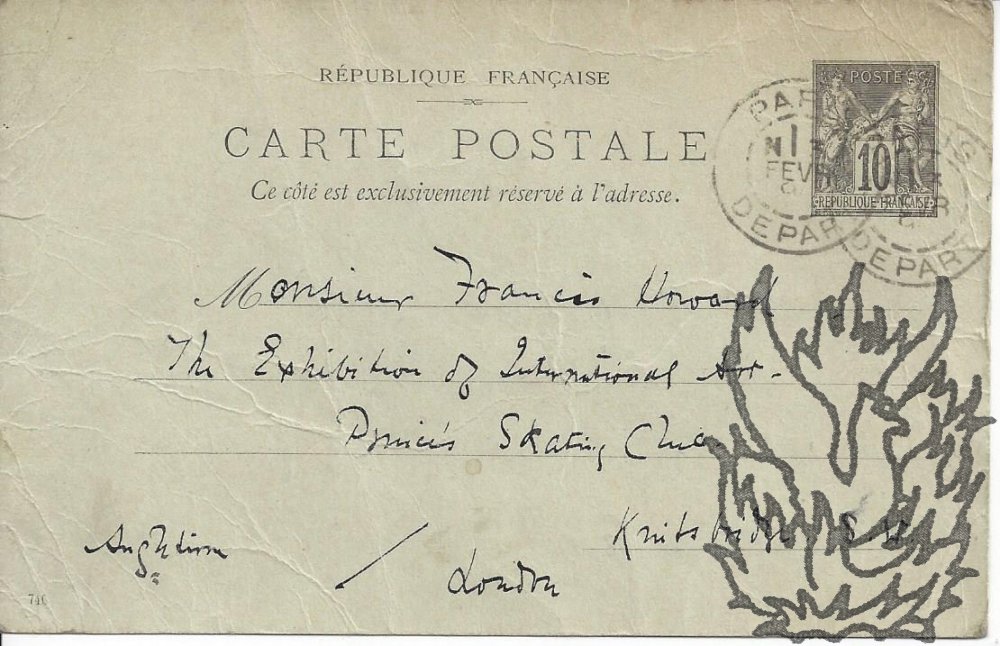 RÉPUBLIQUE FRANÇAISE
CARTE POSTALE
Ce côté est exclusivement réservé à l'adresse.
POSTES
10
RÉPUBLIQUE FRANÇAISE
FEVR
DEPART
Monsieur Francis Howard
The Exhibition of International Art.
Prince's Skating Club
Knitsbridge S.W.
Angleterre
London